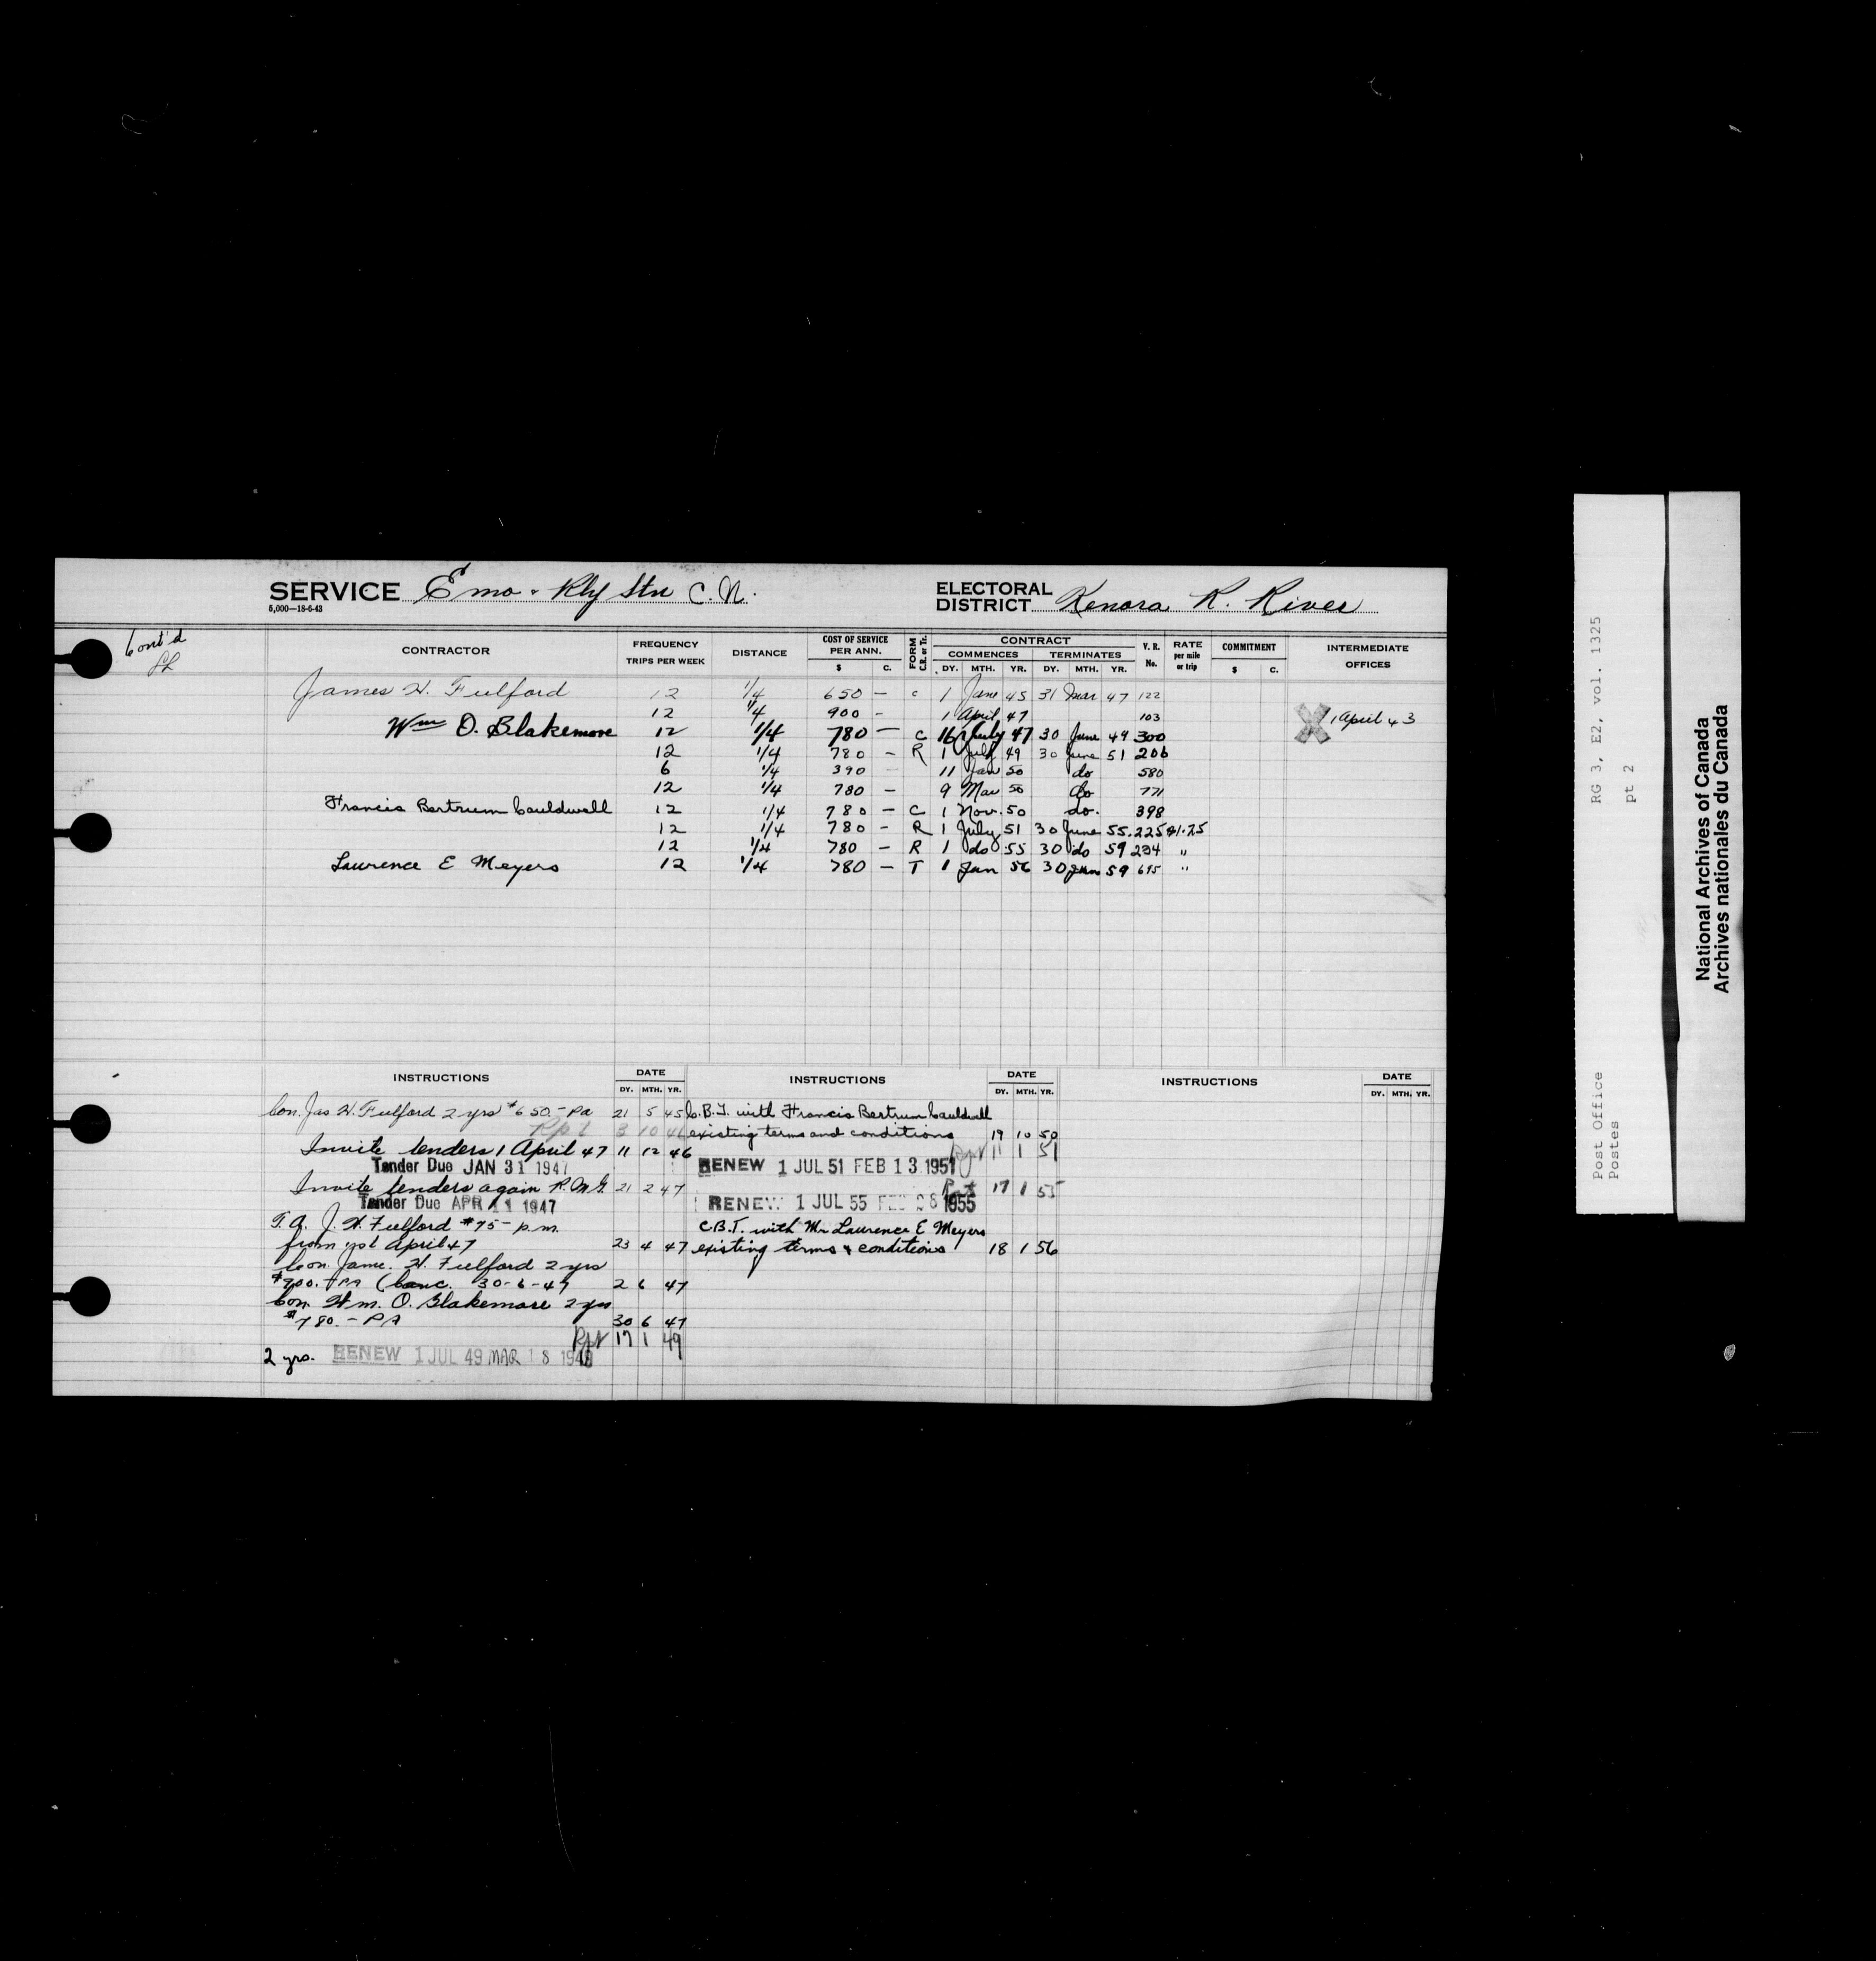 SERVICE Emo - Rly Stn C.N. ELECTORAL DISTRICT Kenora R. River
5,000—18-6-43
Cont'd
CONTRACTOR FREQUENCY TRIPS PER WEEK DISTANCE COST OF SERVICE PER ANN. $ C. FORM C.R. or Tr. CONTRACT COMMENCES DY. MTH. YR. TERMINATES DY. MTH. YR. V. R. No. RATE per mile or trip COMMITMENT $ C. INTERMEDIATE OFFICES
James H. Fulford 12 1/4 650 — c 1 June 45 31 Mar 47 122
12 1/4 900 - 1 April 47 103 X 1 April 43
Wm O. Blakemore 12 1/4 780 — C 16 July 47 30 June 49 300
12 1/4 780 — R 1 July 49 30 June 51 206
6 1/4 390 — 11 Jan 50 do 580
12 1/4 780 — 9 Mar 50 do 771
Francis Bertrum Cauldwell 12 1/4 780 — C 1 Nov. 50 do. 398
12 1/4 780 — R 1 July 51 30 June 55. 225 $1.25
12 1/4 780 — R 1 do 55 30 do 59 234 "
Laurence E Meyers 12 1/4 780 — T 1 Jan 56 30 Jun 59 695 "
INSTRUCTIONS DATE DY. MTH. YR. INSTRUCTIONS DATE DY. MTH. YR. INSTRUCTIONS DATE DY. MTH. YR.
Con. Jas H. Fulford 2 yrs $650.- pa 21 5 45
Rpt 3 10 46
Invite tenders 1 April 47 11 12 46
Tender Due JAN 31 1947
Invite tenders again 21 2 47
Tender Due APR 11 1947
T.A. J. H. Fulford $75- p.m.
from 1st April 47 23 4 47
Con. Jame. H. Fulford 2 yrs
$900. - PA (Canc. 30-6-47 2 6 47
Con. Wm. O. Blakemore 2 yrs
$780. - PA 30 6 47
Rpt 17 1 49
2 yrs. RENEW 1 JUL 49 MAR 18 1949
C.B.T. with Francis Bertrum Cauldwell
existing terms and conditions 19 10 50
Rpt 11 1 51
RENEW 1 JUL 51 FEB 13 1951
Rpt 17 1 55
RENEW 1 JUL 55 FEB 28 1955
C.B.T. with Mr Laurence E Meyers
existing terms & conditions 18 1 56
Post Office RG 3, E2, vol. 1325
Postes pt 2
National Archives of Canada
Archives nationales du Canada